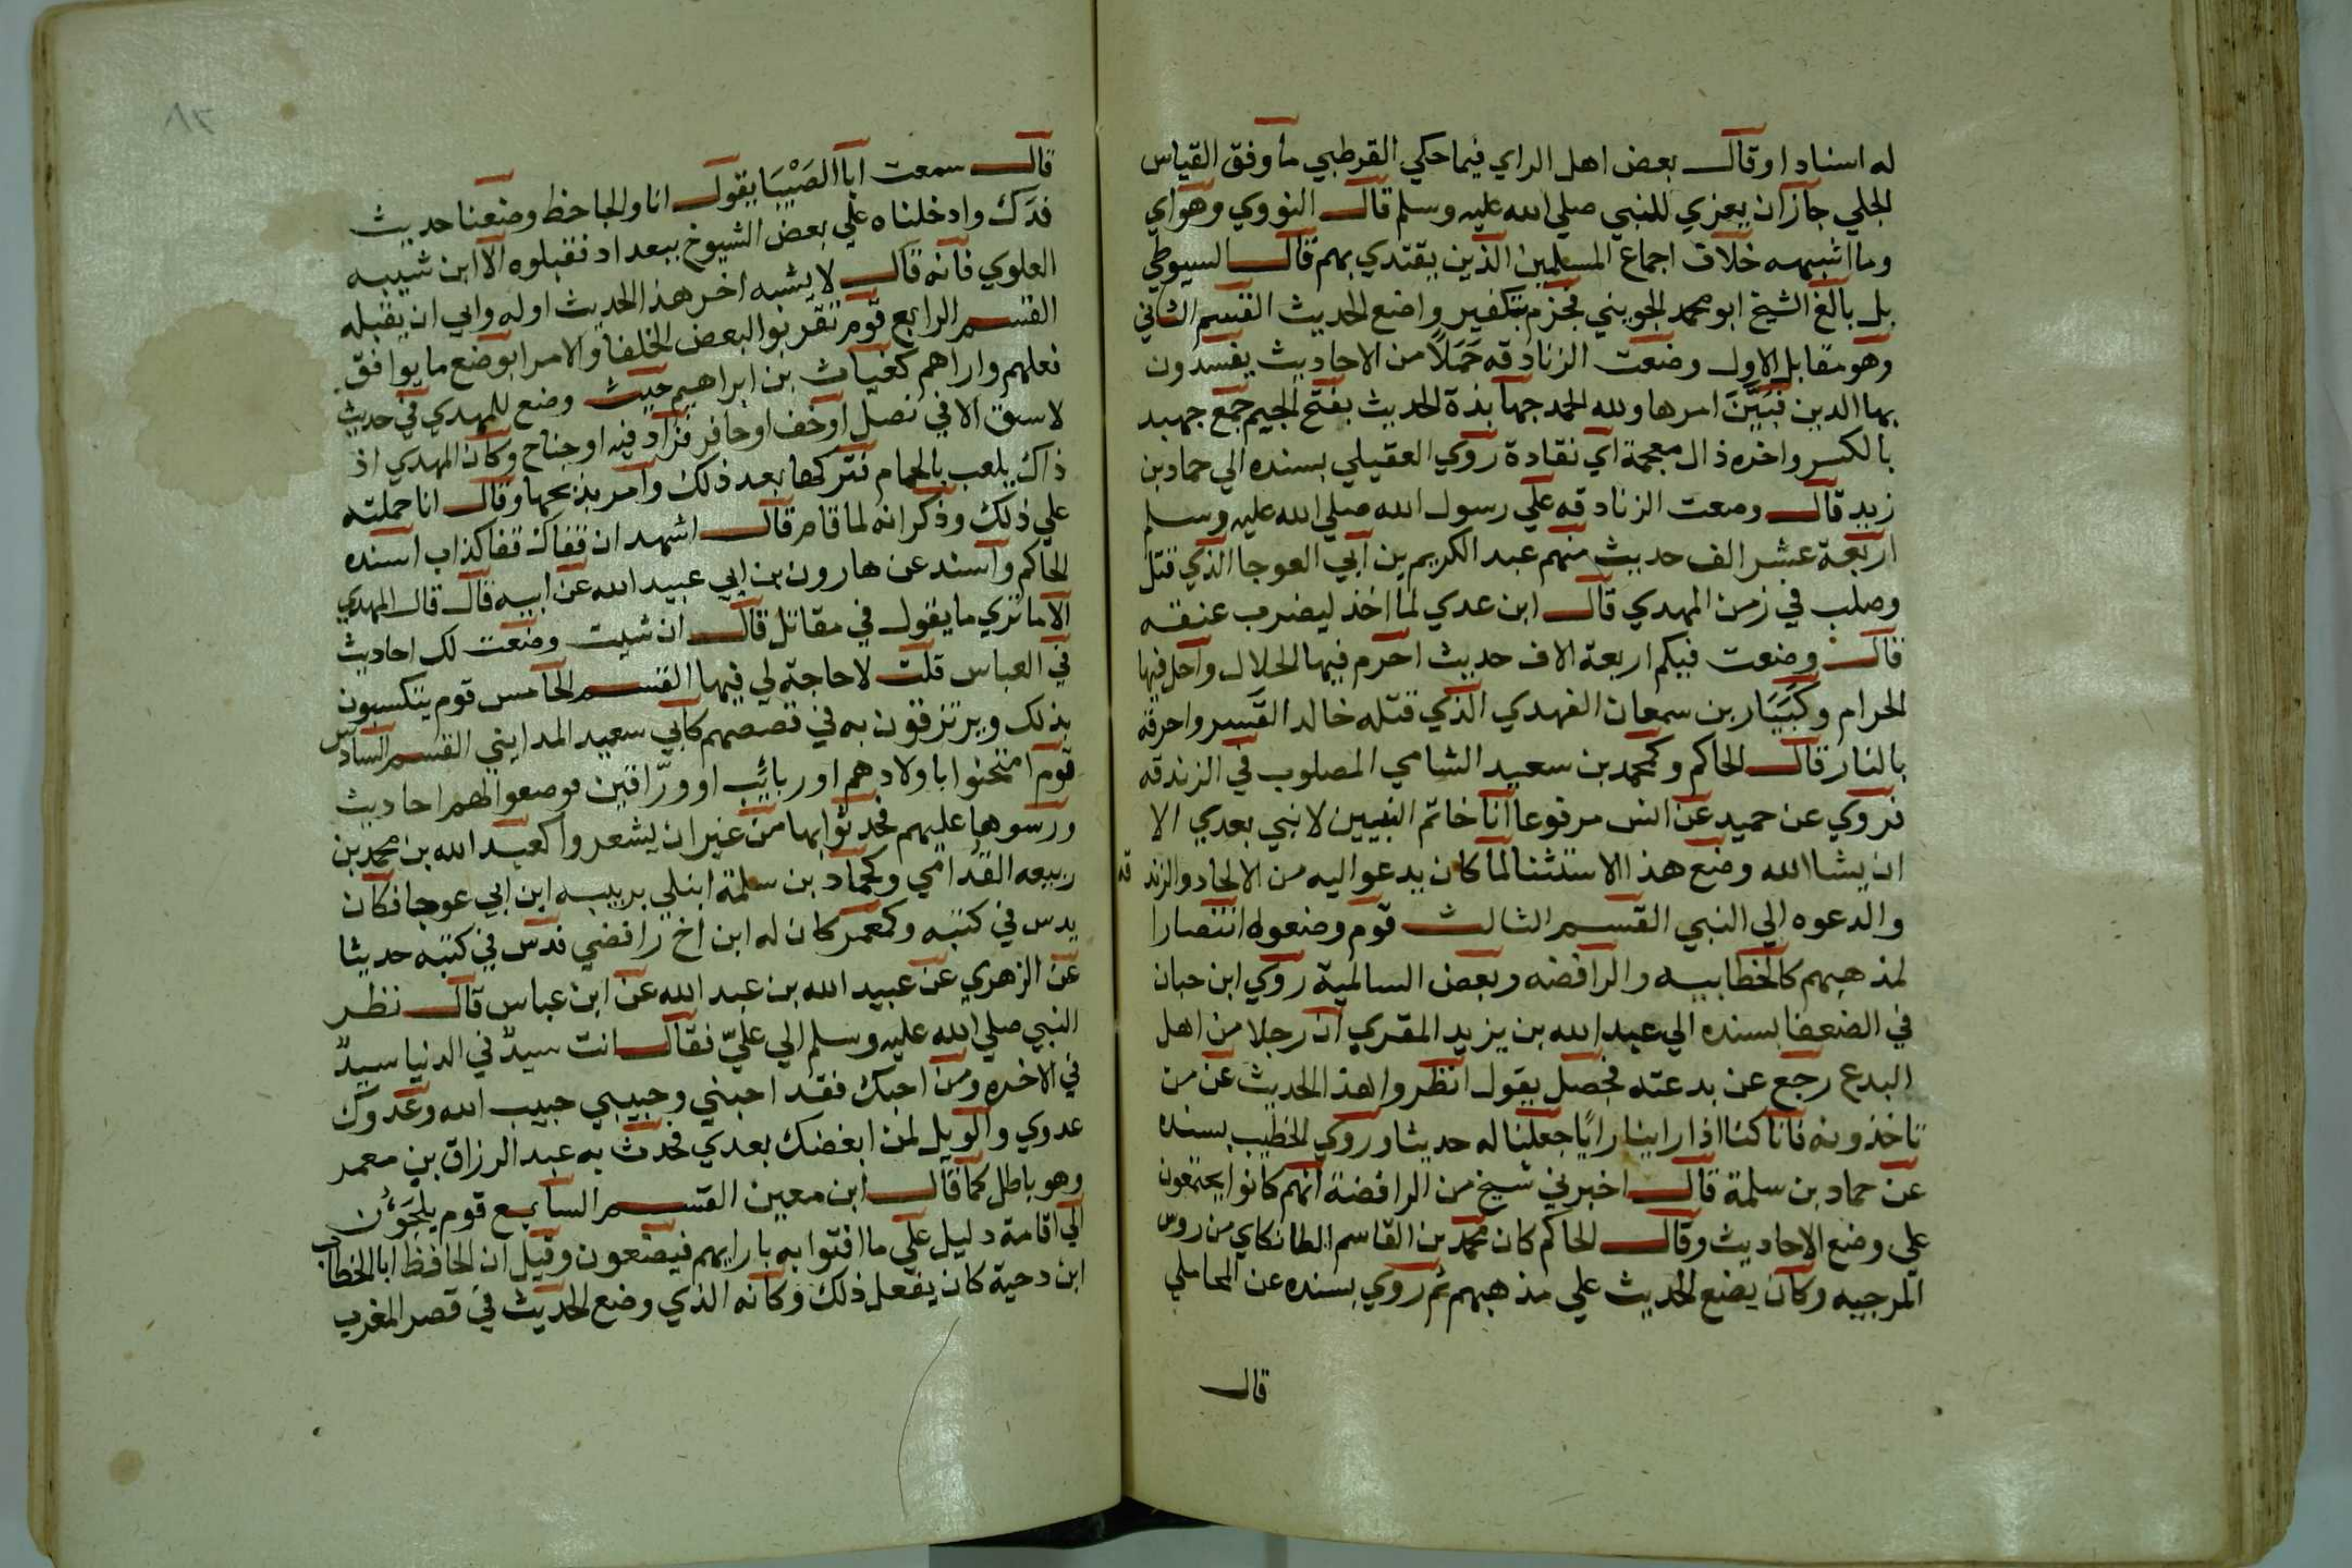 له اسنادا وقال بعض اهل الراي فيما حكي القرطبي ما وفق القياس
الجلي جاز ان يعزي للنبي صلي الله عليه وسلم قال النووي وهو اي
وما اشبهه خلاف اجماع المسلمين الذين يقتدي بهم قال السيوطي
بل بالغ الشيخ ابو محمد الجويني فجزم بتكفير واضع الحديث القسم الثاني
وهو مقابل الاول وضعت الزنادقه حملا من الاحاديث يفسدون
بها الدين فبين امرها ولله الحمد جهابذة الحديث بفتح الجيم جمع جهبد
بالكسر واخره ذال معجمة اي نقادة روي العقيلي بسنده الي حماد بن
زيد قال وضعت الزنادقه علي رسول الله صلي الله عليه وسلم
اربعة عشر الف حديث منهم عبد الكريم بن ابي العوجا الذي قتل
وصلب في زمن المهدي قال ابن عدي لما اخذ ليضرب عنقه
قال وضعت فيكم اربعة الاف حديث احرم فيها الحلال واحل فيها
الحرام وكبيار بن سمعان الفهدي الذي قتله خالد القسر واحرقه
بالنار قال الحاكم وكمحمد بن سعيد الشامي المصلوب في الزندقه
فروي عن حميد عن انس مرفوعا انا خاتم النبيين لا نبي بعدي الا
ان يشا الله وضع هذا الاستثنا لما كان يدعوا اليه من الالحاد والزندقه
والدعوه الي النبي القسم الثالث قوم وضعوه انتصارا
لمذهبهم كالخطابيه والرافضه وبعض السالمية روي ابن حبان
في الضعفا بسنده الي عبد الله بن يزيد المقري ان رجلا من اهل
البدع رجع عن بدعته فجصل يقول انظروا هذا الحديث عن من
تاخذونه فانا كنا اذا راينا رايا جعلنا له حديثا وروي الخطيب بسنده
عن حماد بن سلمة قال اخبرني شيخ من الرافضة انهم كانوا يجتمعون
علي وضع الاحاديث وقال الحاكم كان محمد بن القاسم الطانكاي من روس
المرجيه وكان يضع الحديث علي مذهبهم ثم روي بسنده عن المحاملي
قال
٨٣
قال سمعت ابا الصيبا يقول انا والجاحظ وضعنا حديث
فدك وادخلناه علي بعض الشيوخ ببغداد فقبلوه الا ابن شيبه
العلوي فانه قال لا يشبه اخر هذا الحديث اوله وابي ان يقبله
القسم الرابع قوم تقربوا لبعض الخلفا والامرا بوضع ما يوافق
فعلهم واراهم كغياث بن ابراهيم حيث وضع للمهدي في حديث
لا سبق الا في نصل او خف او حافر فزاد فيه او جناح وكان المهدي اذ
ذاك يلعب بالحمام فتركها بعد ذلك وامر بذبحها وقال انا حملته
علي ذلك وذكر انه لما قام قال اشهد ان قفاك قفا كذاب اسنده
الحاكم واسند عن هارون بن ابي عبيد الله عن ابيه قال قال المهدي
الا ما تري ما يقول في مقاتل قال ان شيت وضعت لك احاديث
في العباس قلت لا حاجة لي فيها القسم الخامس قوم يتكسبون
بذلك ويرتزقون به في قصصهم كابي سعيد المدايني القسم السادس
قوم امتحنوا باولادهم او ربائب او وراقين فوضعوا لهم احاديث
ورسوها عليهم فحدثوا بها من غير ان يشعروا كعبد الله بن محمد بن
ربيعه القدامي وكحماد بن سلمة ابتلي بربيبه ابن ابي عوجا فكان
يدس في كتبه وكمعمر كان له ابن اخ رافضي فدس في كتبه حديثا
عن الزهري عن عبيد الله بن عبد الله عن ابن عباس قال نظر
النبي صلي الله عليه وسلم الي علي فقال انت سيد في الدنيا سيد
في الاخره ومن احبك فقد احبني وحبيبي حبيب الله وعدوك
عدوي والويل لمن ابغضك بعدي فحدث به عبد الرزاق بن معمر
وهو باطل كما قال ابن معين القسم السابع قوم يلجؤن
الي اقامة دليل علي ما افتوا به بارايهم فيضعون وقيل ان الحافظ ابا الخطاب
ابن دحية كان يفعل ذلك وكانه الذي وضع الحديث في قصر المغرب